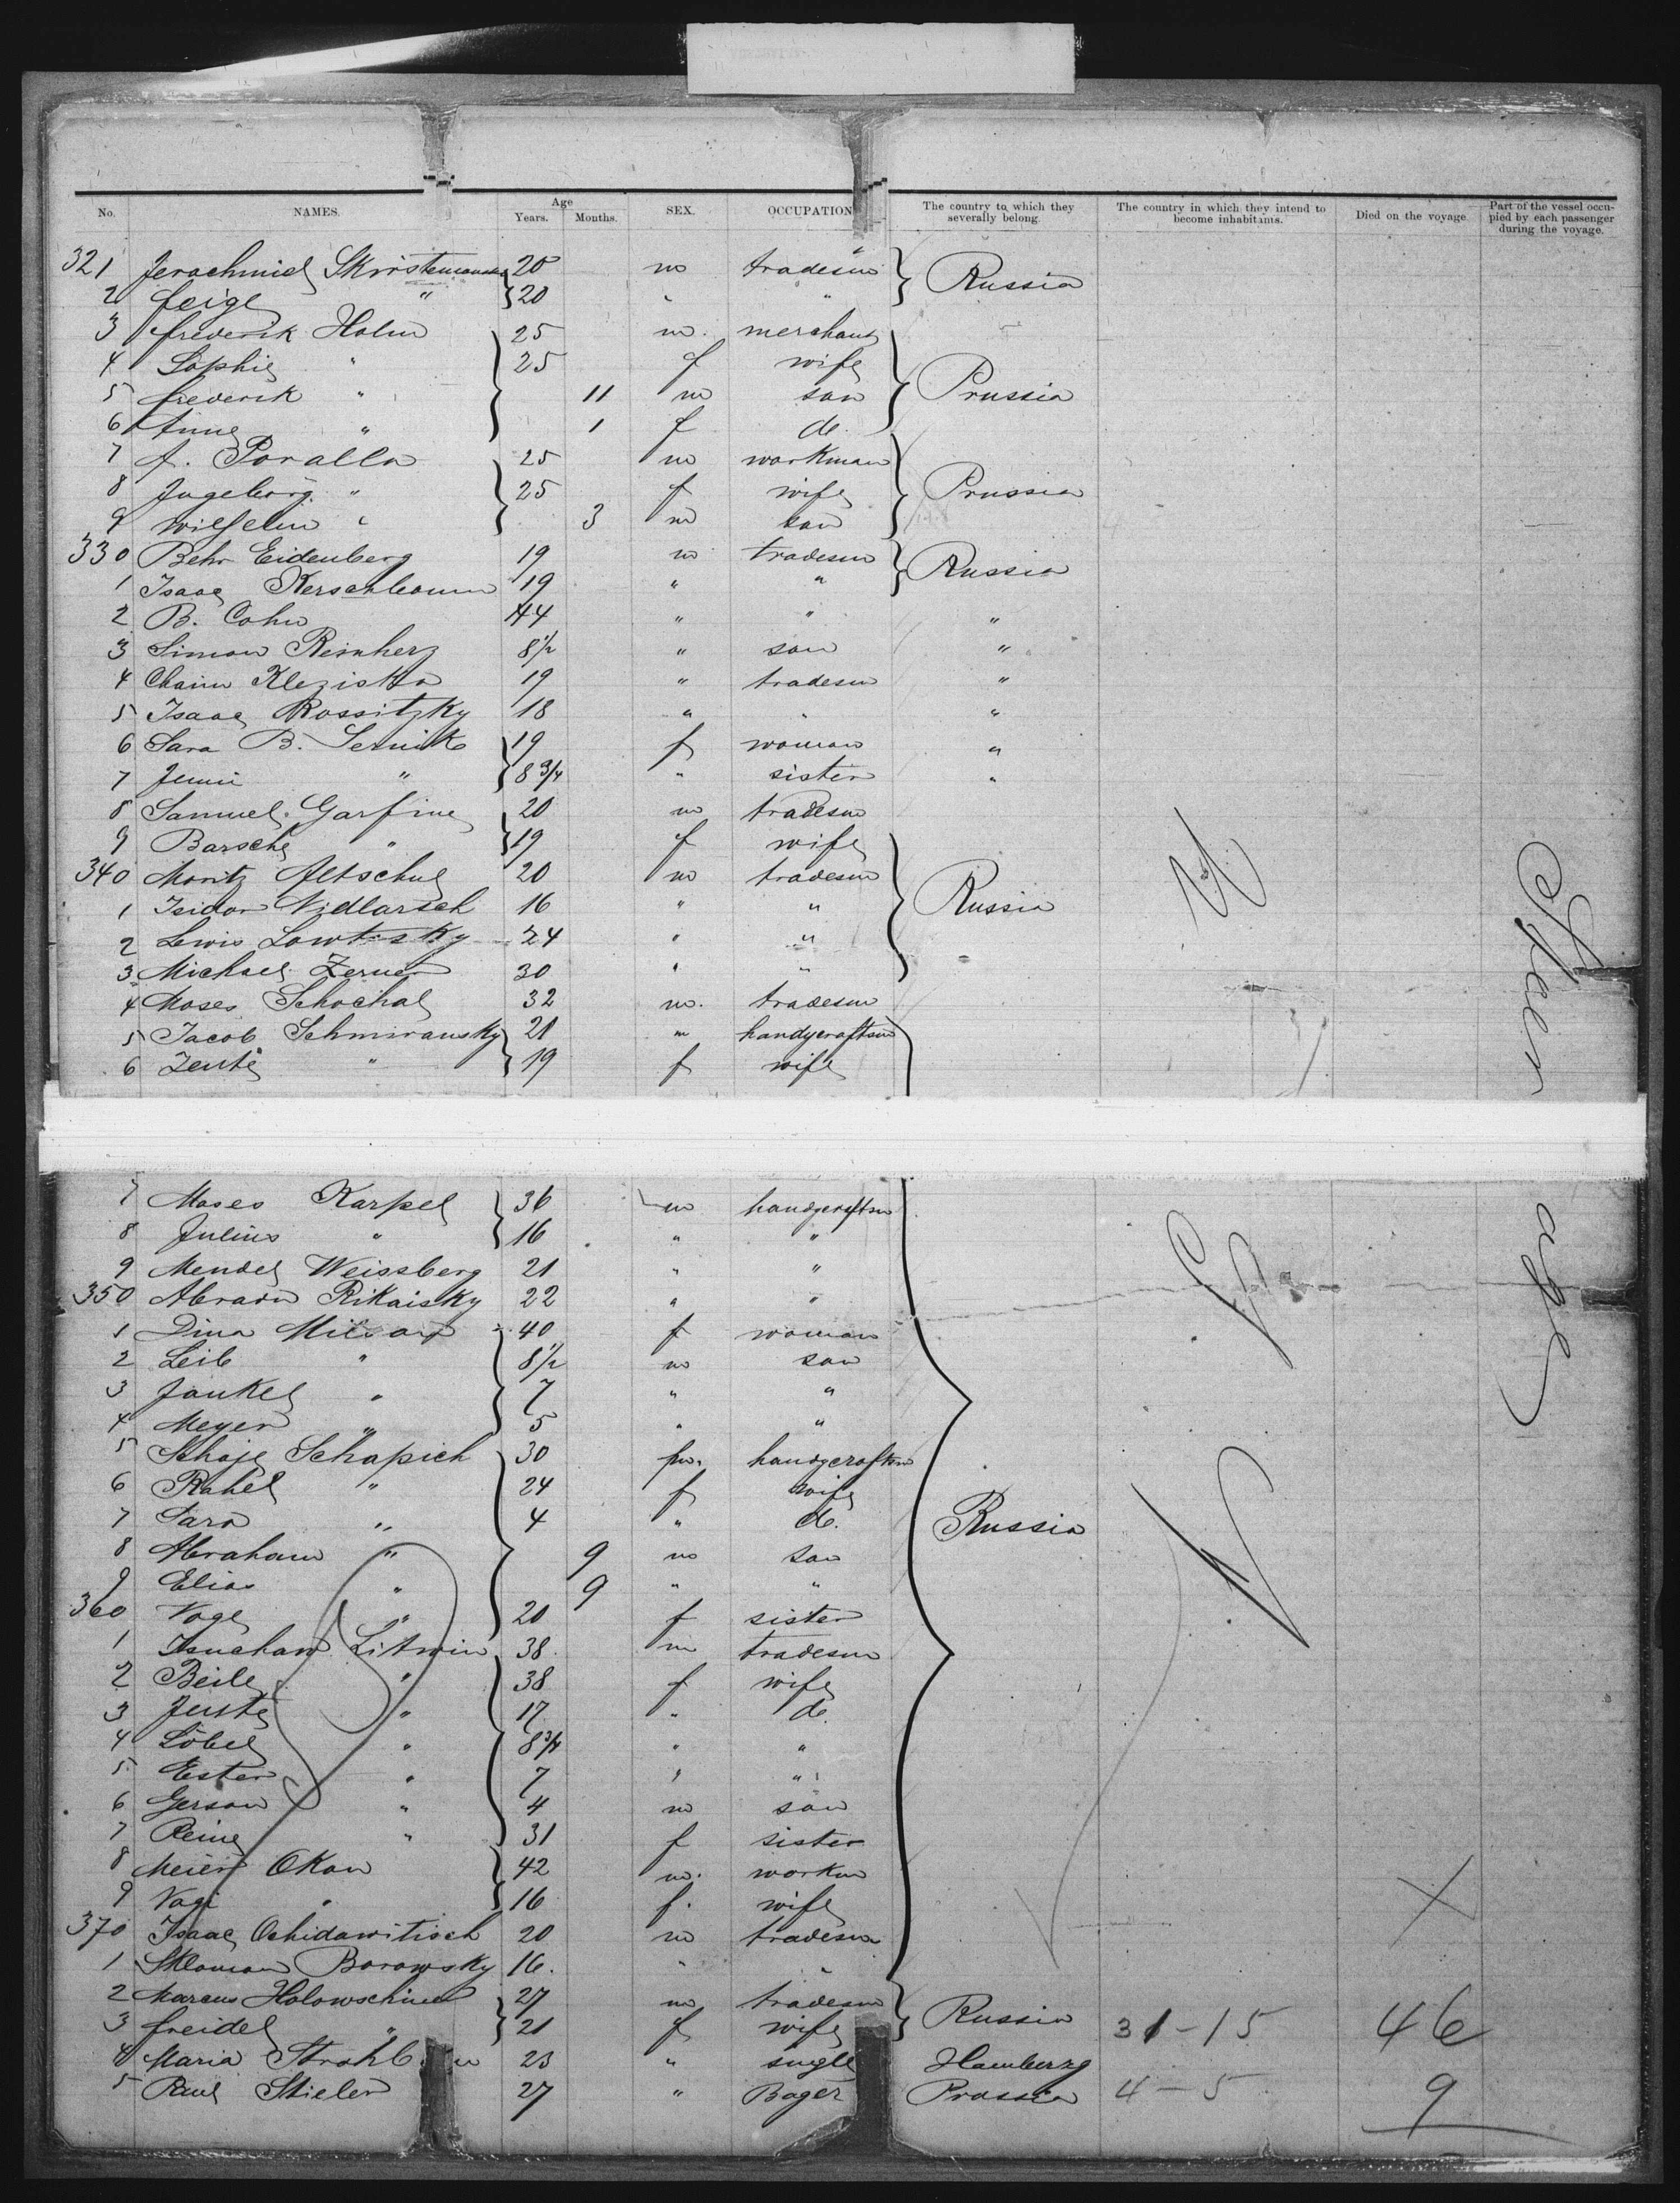 No. NAMES. Age Years. Months. SEX. OCCUPATION The country to which they severally belong. The country in which they intend to become inhabitants. Died on the voyage Part of the vessel occupied by each passenger during the voyage.
321 20 m tradesm Russia
2 Feige " 20 " "
3 Frederik Holm 25 m. merchant
4 Sophie " 25 f wife
5 Frederik " 11 m son Prussia
6 Anne " 1 f do.
7 A. Poralla 25 m workman
8 Ingeborg " 25 f wife Prussia
9 Wilhelm " 3 m son
330 Behr Eidenberg 19 m tradesm Russia
1 Isaac Kerschbaum 19 " "
2 B. Cohn 44 " " "
3 Simon Reinherz 8 1/2 " son "
4 Chaim Kleziska 19 " tradesm "
5 Isaac Rossitzky 18 " " "
6 Sara B. 19 f woman "
7 " 8 3/4 " sister "
8 Samuel Garfine 20 m tradesm
9 Barsche " 19 f wife
340 Moritz Altschul 20 m tradesm
1 Isidor 16 " " Russia
2 Lewis 24 " "
3 Michael 30 " "
4 Moses Schochal 32 m. tradesm
5 Jacob Schmiransky 21 m handycraftsm
6 " 19 f wife
7 Moses Karpel 36 m handycraftsm
8 Julius " 16 " "
9 Mendel Weissberg 21 " "
350 Abram Rikaisky 22 " "
1 Dina 40 f woman
2 Leib " 8 1/2 m son
3 Jankel " 7 " "
4 Meyer " 5 " "
5 Schapich 30 m. handycraftsm
6 Rahel " 24 f wife
7 Sara " 4 " do. Russia
8 Abraham " 9 m son
9 Elias " 9 " "
360 " 20 f sister
1 Litwin 38 m tradesm
2 Beile " 38 f wife
3 " 17 " do.
4 Löbel " 8 3/4 " "
5 Ester " 7 " "
6 Gerson " 4 m son
7 Reine " 31 f sister
8 Meier Okon 42 m. workm
9 " 16 f. wife
370 Isaac 20 m tradesm
1 Borowsky 16. " "
2 Marcus 27 m tradesm Russia 31-15 46
3 Freidel " 21 f wife
4 Maria 23 " single Hamburg
5 Paul Stieler 27 " Prussia 4-5 9
Steerage